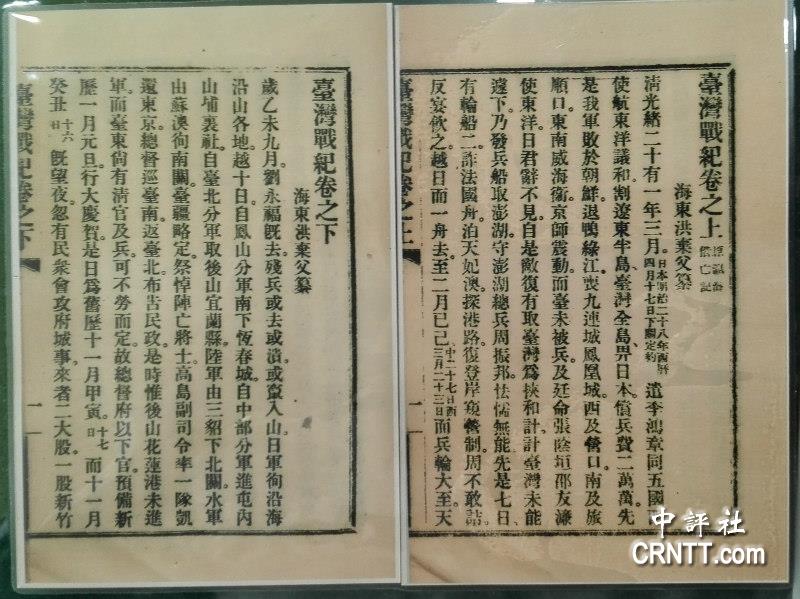 臺灣戰紀卷之上 原瀛海偕亡記
海東洪棄父纂
清光緒二十有一年三月。日本明治二十八年西曆四月十七日下關定約 遣李鴻章同五國
使航東洋議和。割遼東半島。臺灣全島。畀日本。償兵費二萬萬。先
是我軍敗於朝鮮。退鴨綠江。喪九連城鳳凰城。西及營口。南及旅
順口。東南威海衛。京師震動。而臺未被兵。及廷命張蔭垣邵友濂
使東洋。日君辭不見。自是敵復有取臺灣為挾和計。計臺灣未能
遽下。乃發兵船取澎湖。守澎湖總兵周振邦怯懦無能。先是七日。
有輪船二。詐法國舟。泊天妃澳。探港路。復登岸窺營制。周不敢詰。
反宴飲之。越日而一舟去。至二月己巳。中二十七日西三月二十三日 而兵輪大至。天
臺灣戰紀卷之上
一
臺灣戰紀卷之下
海東洪棄父纂
歲乙未九月。劉永福既去。殘兵或去或潰或竄入山。日軍徇沿海
沿山各地。越十日。自鳳山分軍南下恆春城。自中部分軍進屯內
山埔裏社。自臺北分軍取後山宜蘭縣。陸軍由三貂下北關。水軍
由蘇澳徇南關。臺疆略定。祭悼陣亡將士。高島副司令率一隊凱
還東京。總督巡臺南。返臺北。布告民政。是時惟後山花蓮港未進
軍。而臺東尚有清官及兵。可不勞而定。故總督府以下官預備新
曆一月元旦。行大慶賀。是日為舊曆十一月甲寅。十七日 而十一月
癸丑。十六日 既望夜。忽有民衆會攻府城事。來者二大股。一股新竹
臺灣戰紀卷之下
一
中評社
CRNTT.com